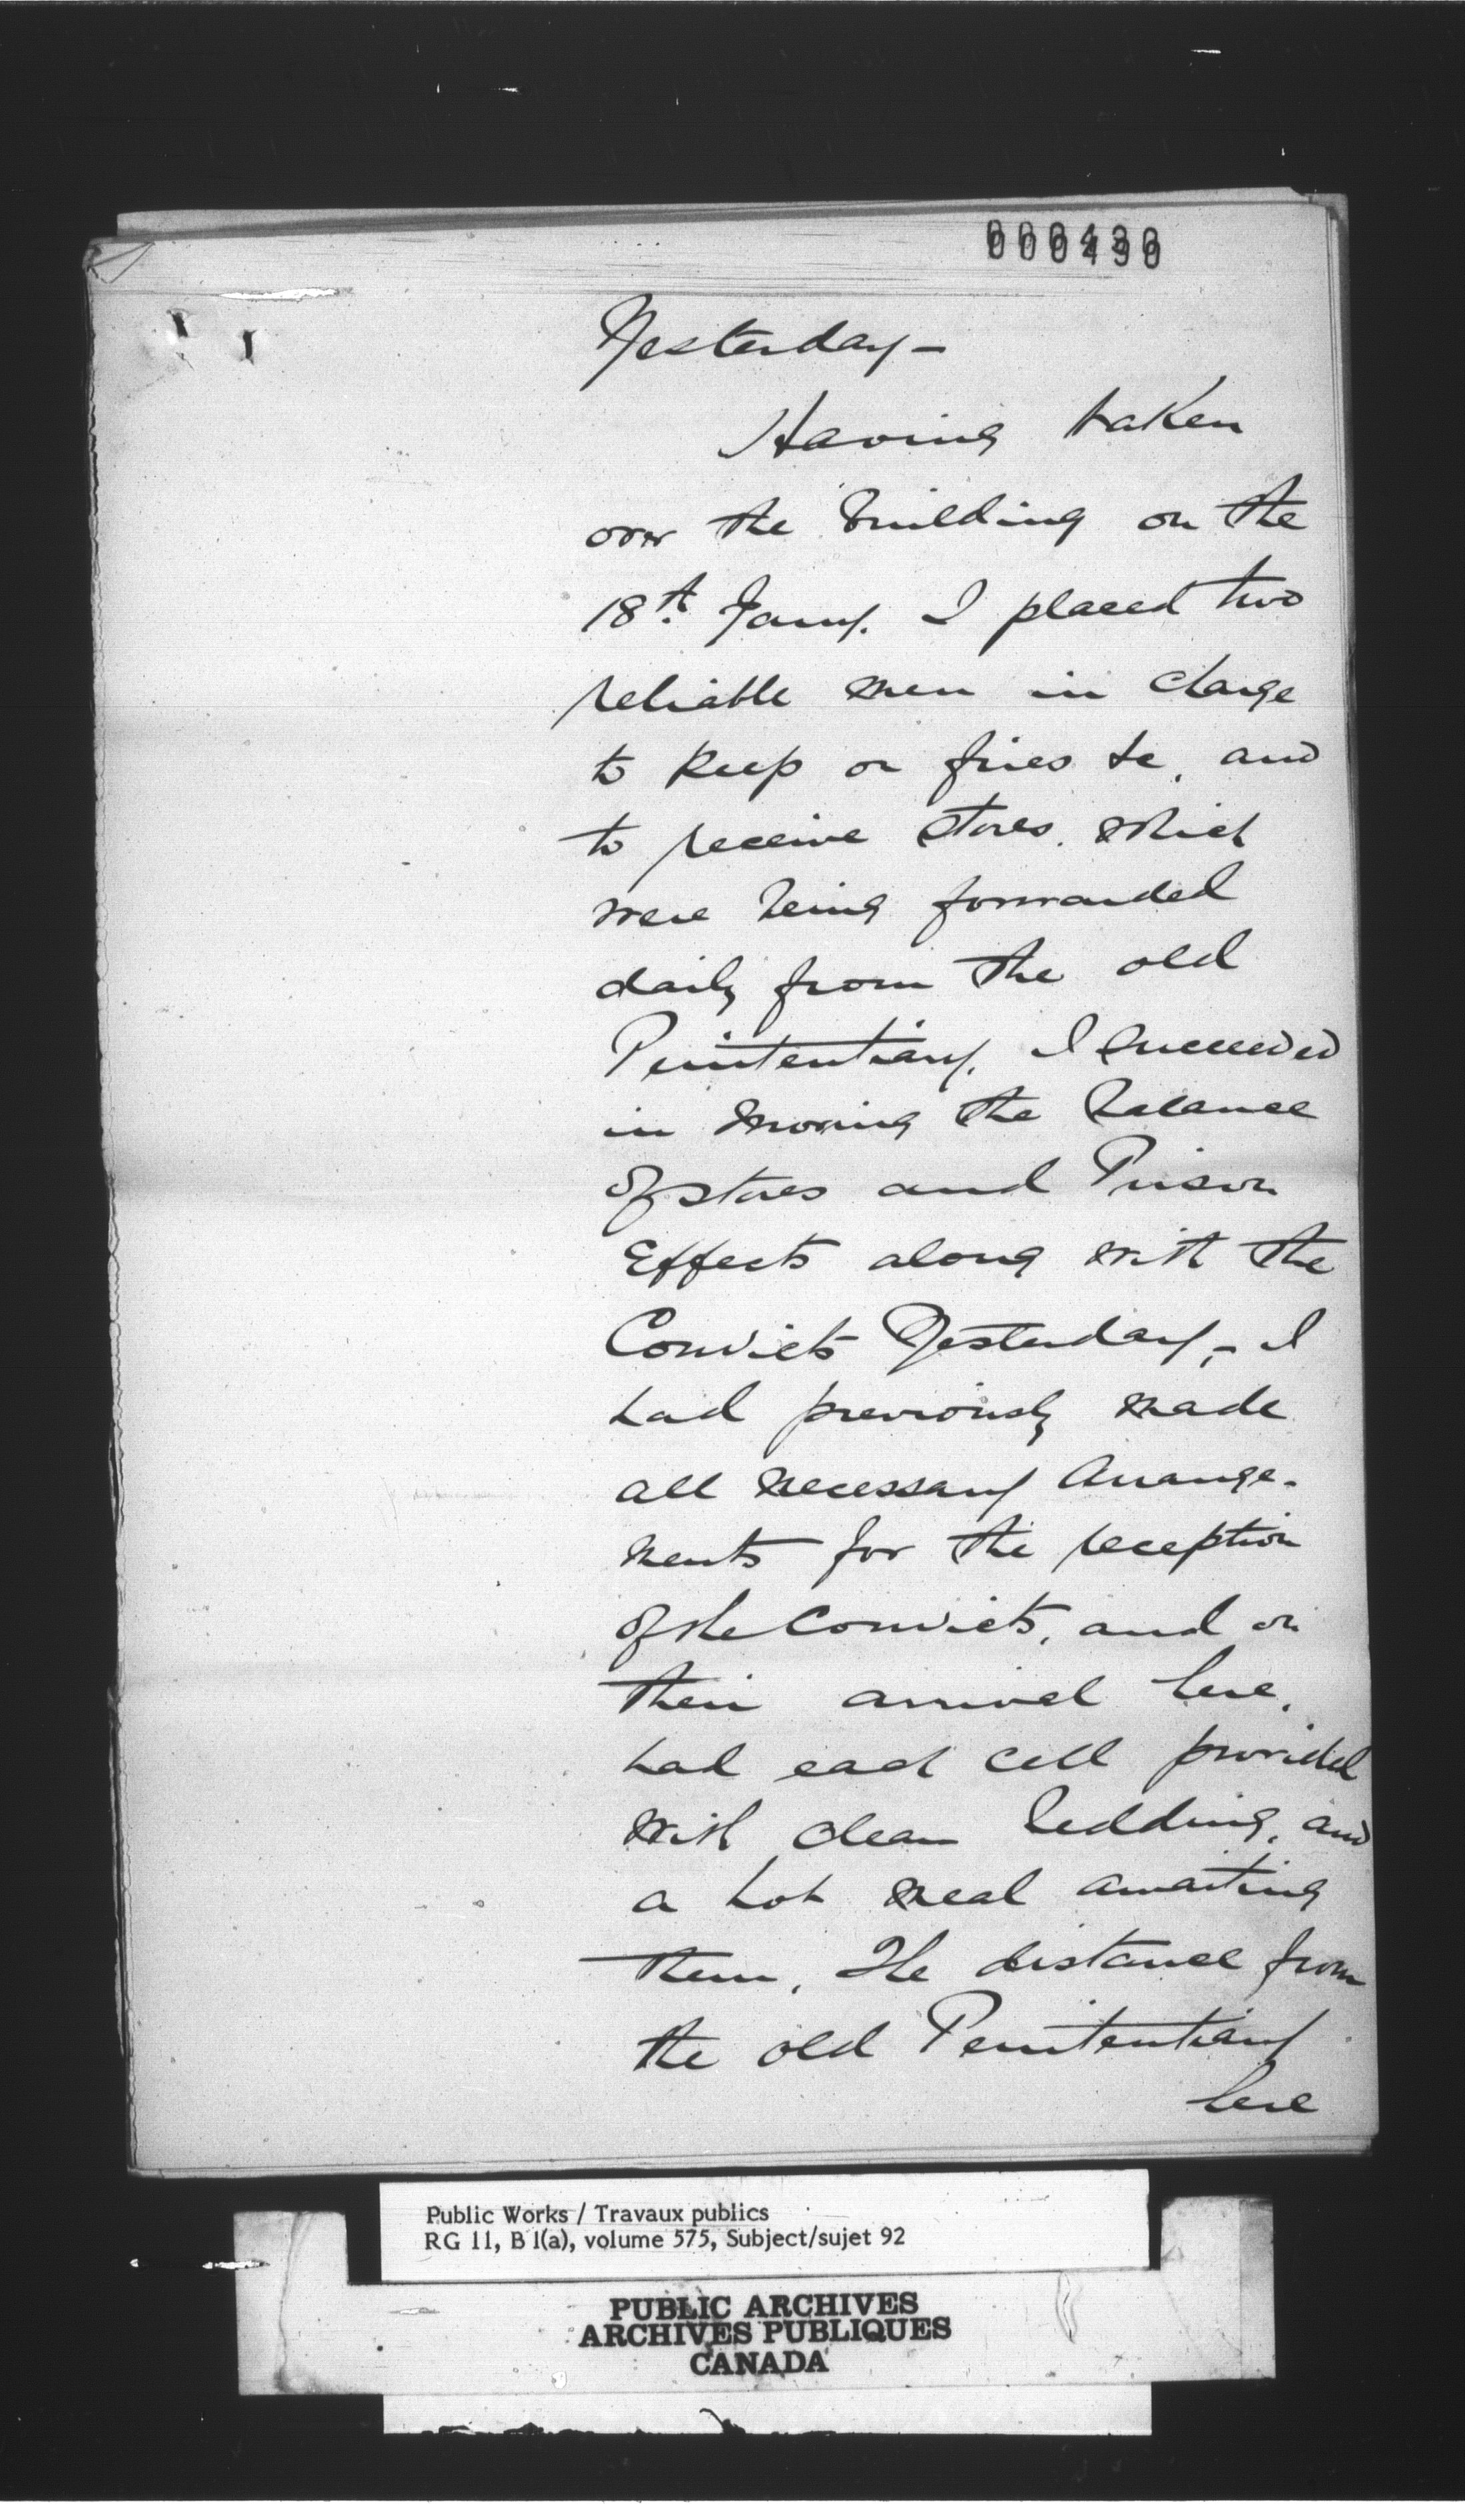 Yesterday –
Having taken
over the building on the
18th. Jany. I placed two
reliable men in charge
to keep on fires &c, and
to receive stores, which
were being forwarded
daily from the old
Penitentiary. I succeeded
in moving the balance
of stores and Prison
Effects along with the
Convicts Yesterday, – I
had previously made
all necessary arrange-
ments for the reception
of the Convicts, and on
their arrival here,
had each cell provided
with clean bedding, and
a hot meal awaiting
them, The distance from
the old Penitentiary
here
Public Works / Travaux publics
RG 11, B 1(a), volume 575, Subject/sujet 92
PUBLIC ARCHIVES
ARCHIVES PUBLIQUES
CANADA